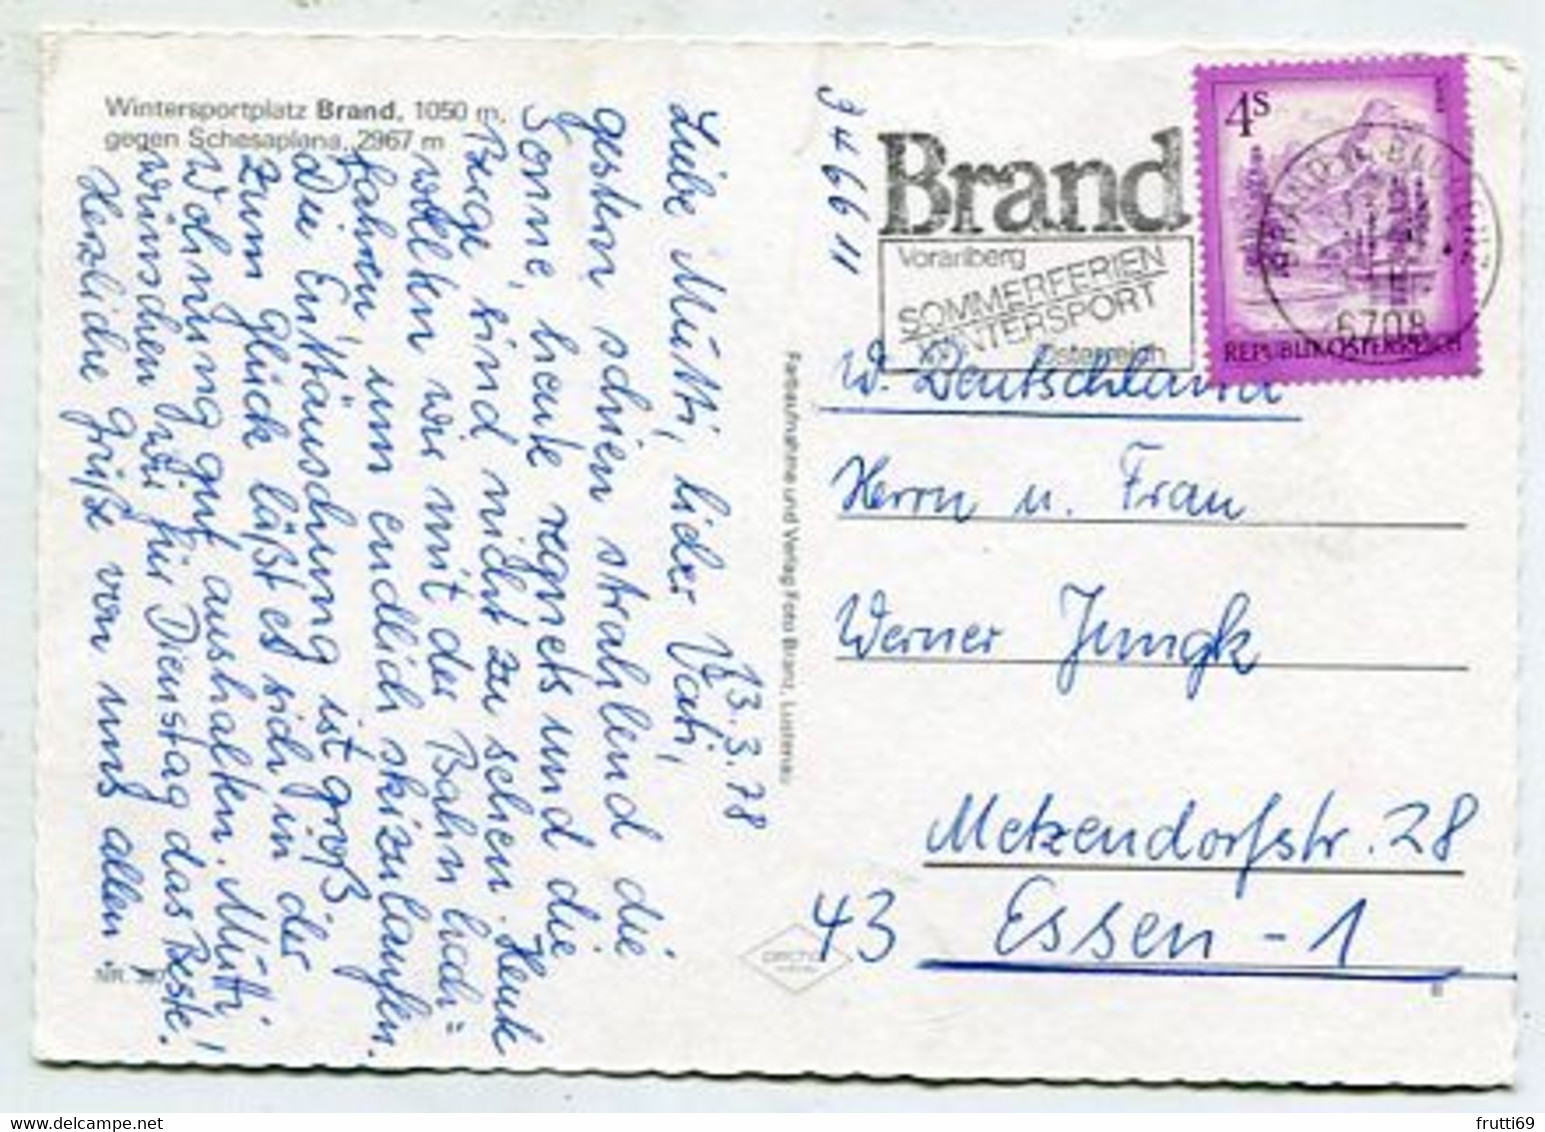 Wintersportplatz Brand, 1050 m,
gegen Schesaplana, 2967 m
13.3.78
Liebe Mutti, lieber Vati,
gestern schien strahlend die
Sonne, heute regnets und die
Berge sind nicht zu sehen. Heute
wollten wir mit der Bahn hoch-
fahren, um endlich skizulaufen.
Die Enttäuschung ist groß.
Zum Glück läßt es sich in der
Wohnung gut aushalten. Mutti
wünschen wir für Dienstag das Beste!
Herzliche Grüße von uns allen
NR.
Farbaufnahme und Verlag Foto Branz, Lustenau
34661
Brand
Vorarlberg
SOMMERFERIEN
WINTERSPORT
Österreich
4S
REPUBLIK ÖSTERREICH
6708
W. Deutschland
Herrn u. Frau
Werner Jungk
Metzendorfstr. 28
43 Essen-1
frutti69